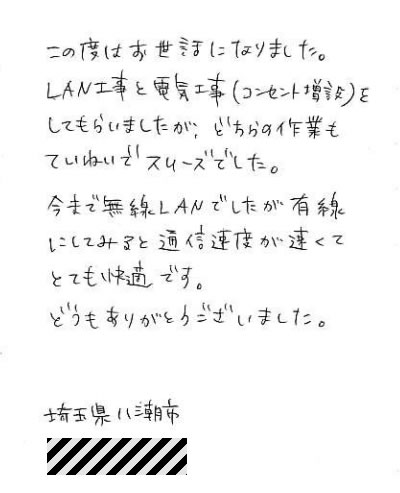 この度はお世話になりました。
LAN工事と電気工事(コンセント増設)を
してもらいましたが、どちらの作業も
ていねいでスムーズでした。
今まで無線LANでしたが有線
にしてみると通信速度が速くて
とても快適です。
どうもありがとうございました。
埼玉県八潮市